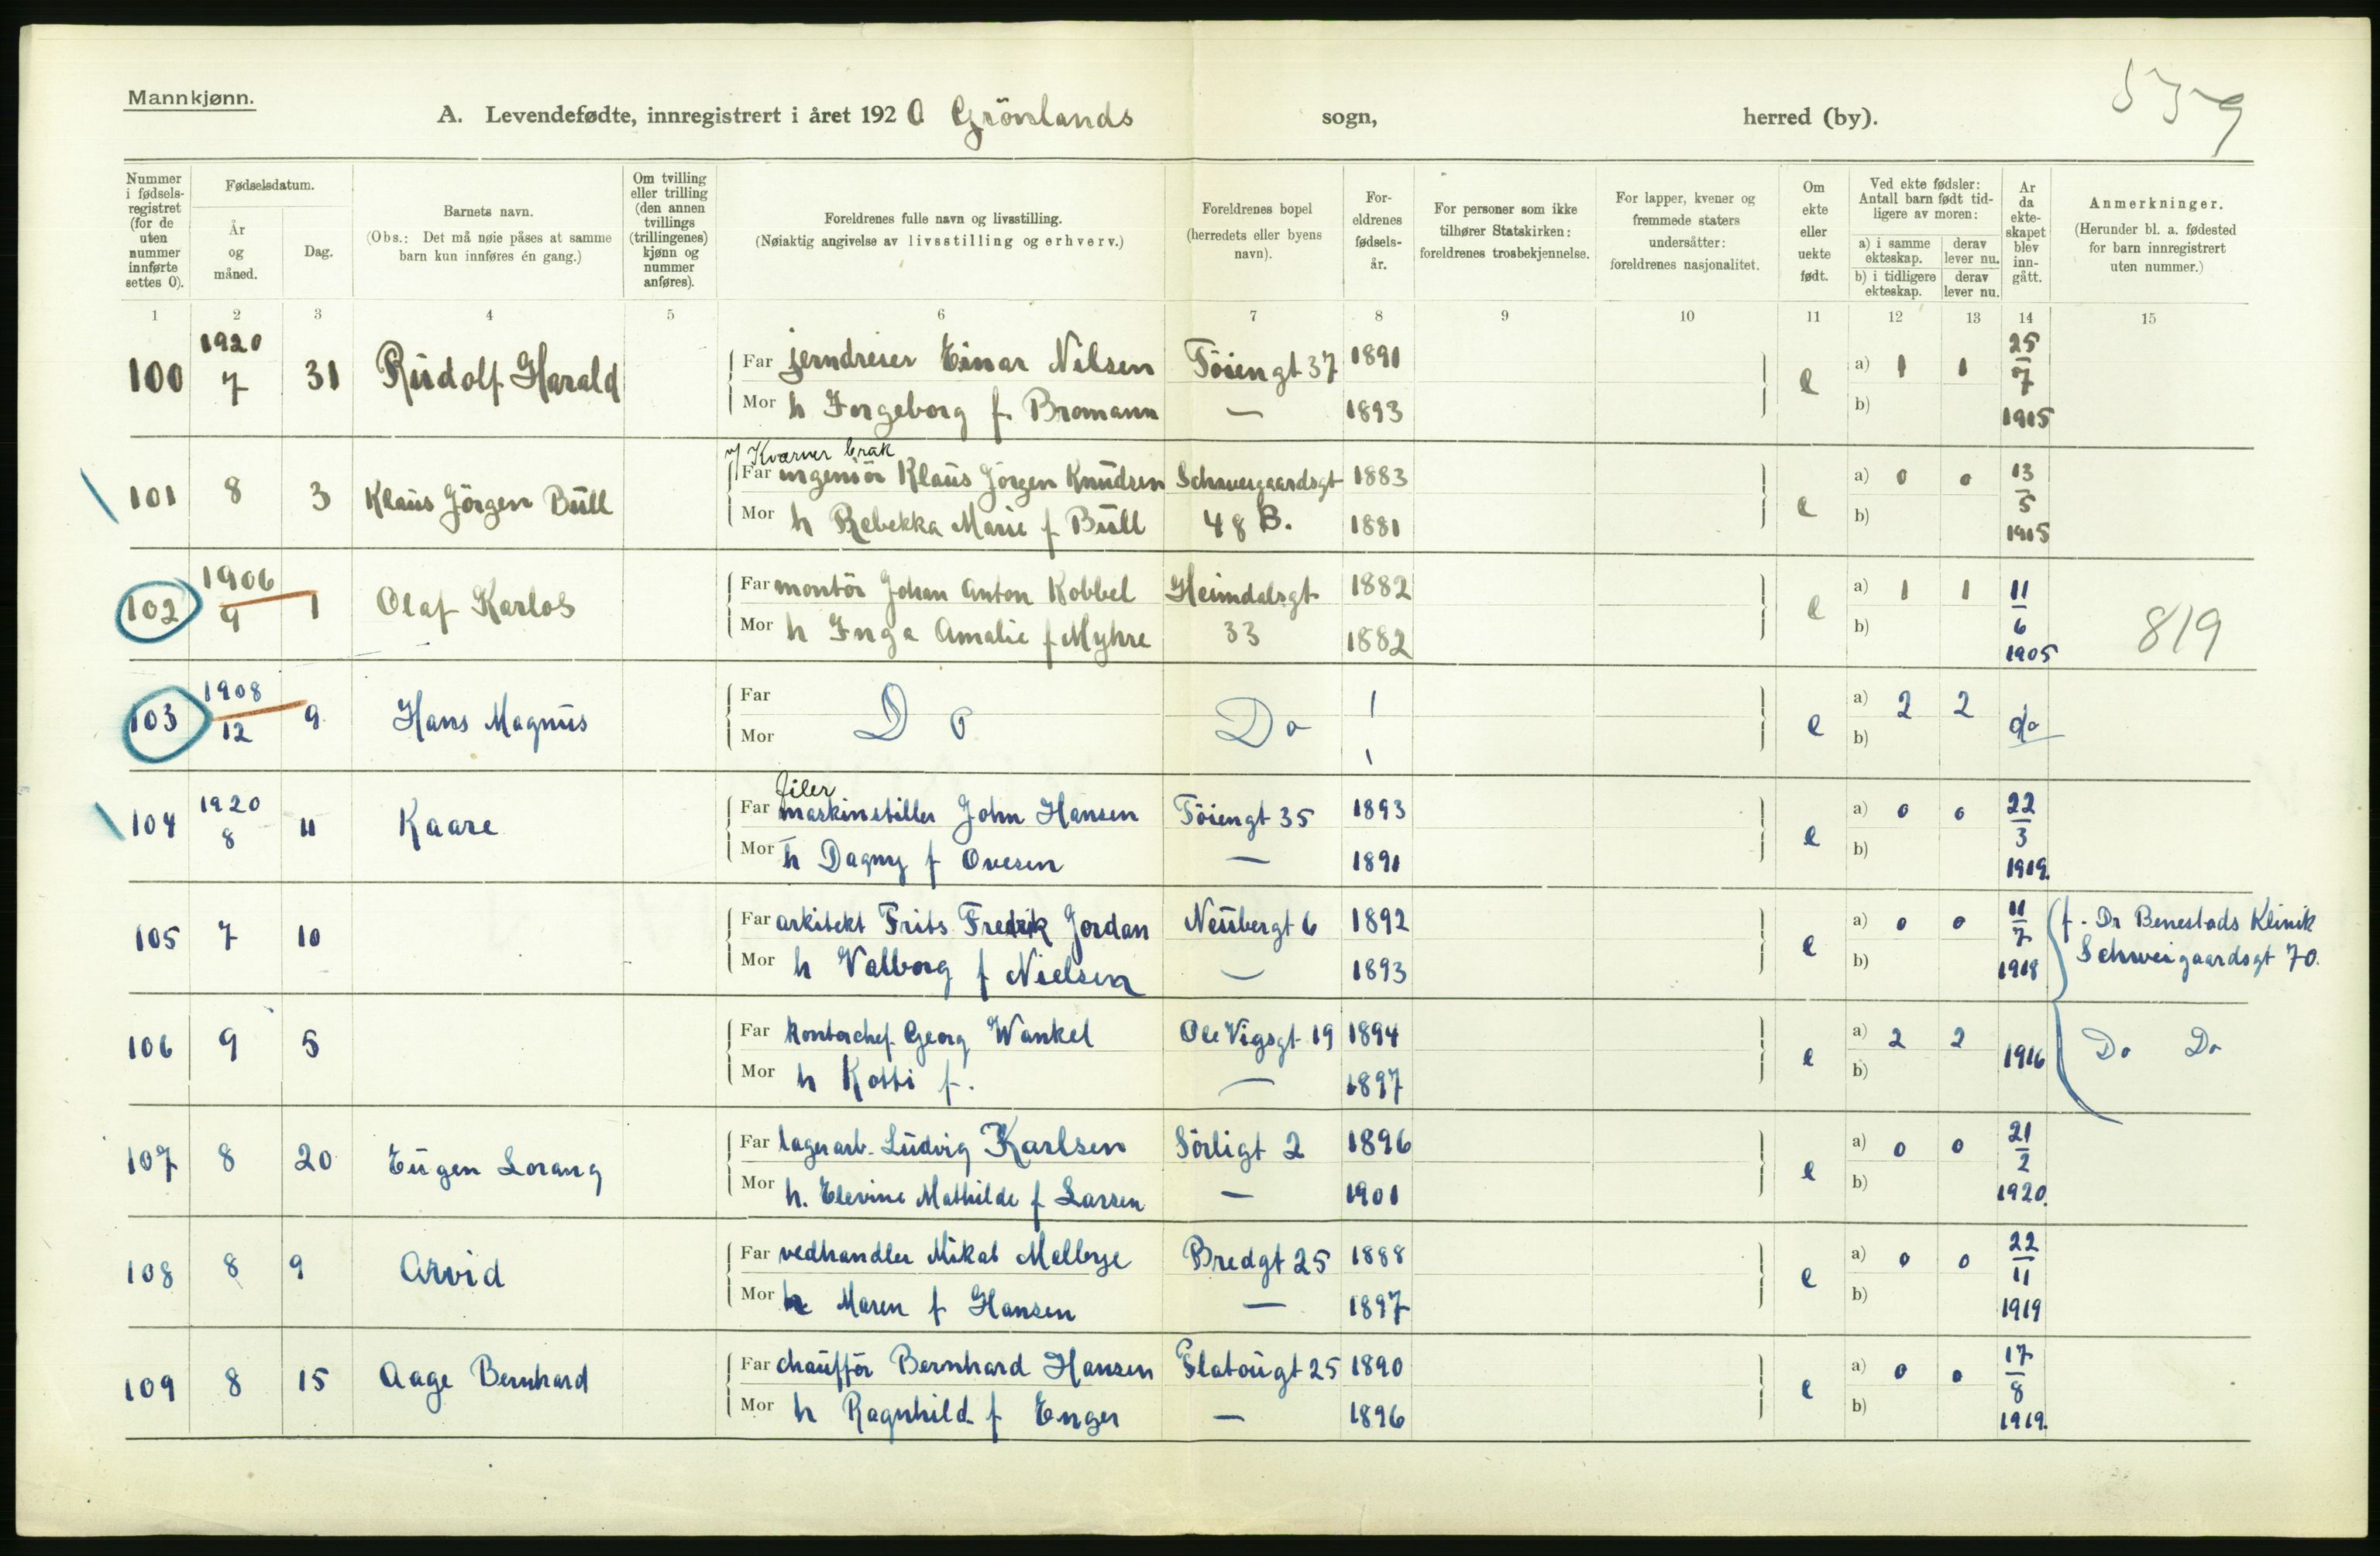 Mannkjønn.
539
A. Levendefødte, innregistrert i året 1920 Grönlands sogn, herred (by).
Nummer i fødselsregistret (for de uten nummer innførte settes 0).
Fødselsdatum.
År og måned.
Dag.
Barnets navn.
(Obs.: Det må nøie påses at samme barn kun innføres én gang.)
Om tvilling eller trilling (den annen tvillings (trillingenes) kjønn og nummer anføres).
Foreldrenes fulle navn og livsstilling.
(Nøiaktig angivelse av livsstilling og erhverv.)
Foreldrenes bopel (herredets eller byens navn).
Foreldrenes fødselsår.
For personer som ikke tilhører Statskirken: foreldrenes trosbekjennelse.
For lapper, kvener og fremmede staters undersåtter: foreldrenes nasjonalitet.
Om ekte eller uekte født.
Ved ekte fødsler: Antall barn født tidligere av moren:
a) i samme ekteskap. derav lever nu.
b) i tidligere ekteskap. derav lever nu.
År da ekteskapet blev inngått.
Anmerkninger.
(Herunder bl. a. fødested for barn innregistrert uten nummer.)
1 2 3 4 5 6 7 8 9 10 11 12 13 14 15
100 1920 7 31 Rudolf Harald Far jerndreier Einar Nilsen Töiengt 37 1891 e a) 1 1 25/7 1915
Mor h Ingeborg f. Bromann — 1893 b)
v/ Kværner bruk
101 8 3 Klaus Jörgen Bull Far ingeniör Klaus Jörgen Knudsen Schweigaardsgt 1883 e a) 0 0 13/5 1915
Mor h Rebekka Marie f Bull 48 B. 1881 b)
102 1906 9 1 Olaf Karlos Far montör Johan Anton Kobbel Heimdalsgt 1882 e a) 1 1 11/6 1905 819
Mor h Inga Amalie f Myhre 33 1882 b)
103 1908 12 9 Hans Magnus Far Do Do e a) 2 2 do
Mor b)
filer
104 1920 8 11 Kaare Far maskinstiller John Hansen Töiengt 35 1893 e a) 0 0 22/3 1919.
Mor h Dagny f Ovesen — 1891 b)
105 7 10 Far arkitekt Frits Fredrik Jordan Neubergt 6 1892 e a) 0 0 11/7 1918 f. Dr Benestads Klinik
Mor h Valborg f Nielsen — 1893 b) Schweigaardsgt 70.
106 9 5 Far kontorchef Georg Wankel Ole Vigsgt 19 1894 e a) 2 2 1916 Do Do
Mor h Kotti f. — 1897 b)
107 8 20 Eugen Lorang Far lagerarb. Ludvig Karlsen Sörligt 2 1896 e a) 0 0 21/2 1920.
Mor h. Elevine Mathilde f Larsen — 1901 b)
108 8 9 Arvid Far vedhandler Mikal Melbye Bredgt 25 1888 e a) 0 0 22/11 1919
Mor h Maren f Hansen — 1897 b)
109 8 15 Aage Bernhard Far chaufför Bernhard Hansen Platougt 25 1890 e a) 0 0 17/8 1919.
Mor h Ragnhild f Enger — 1896 b)